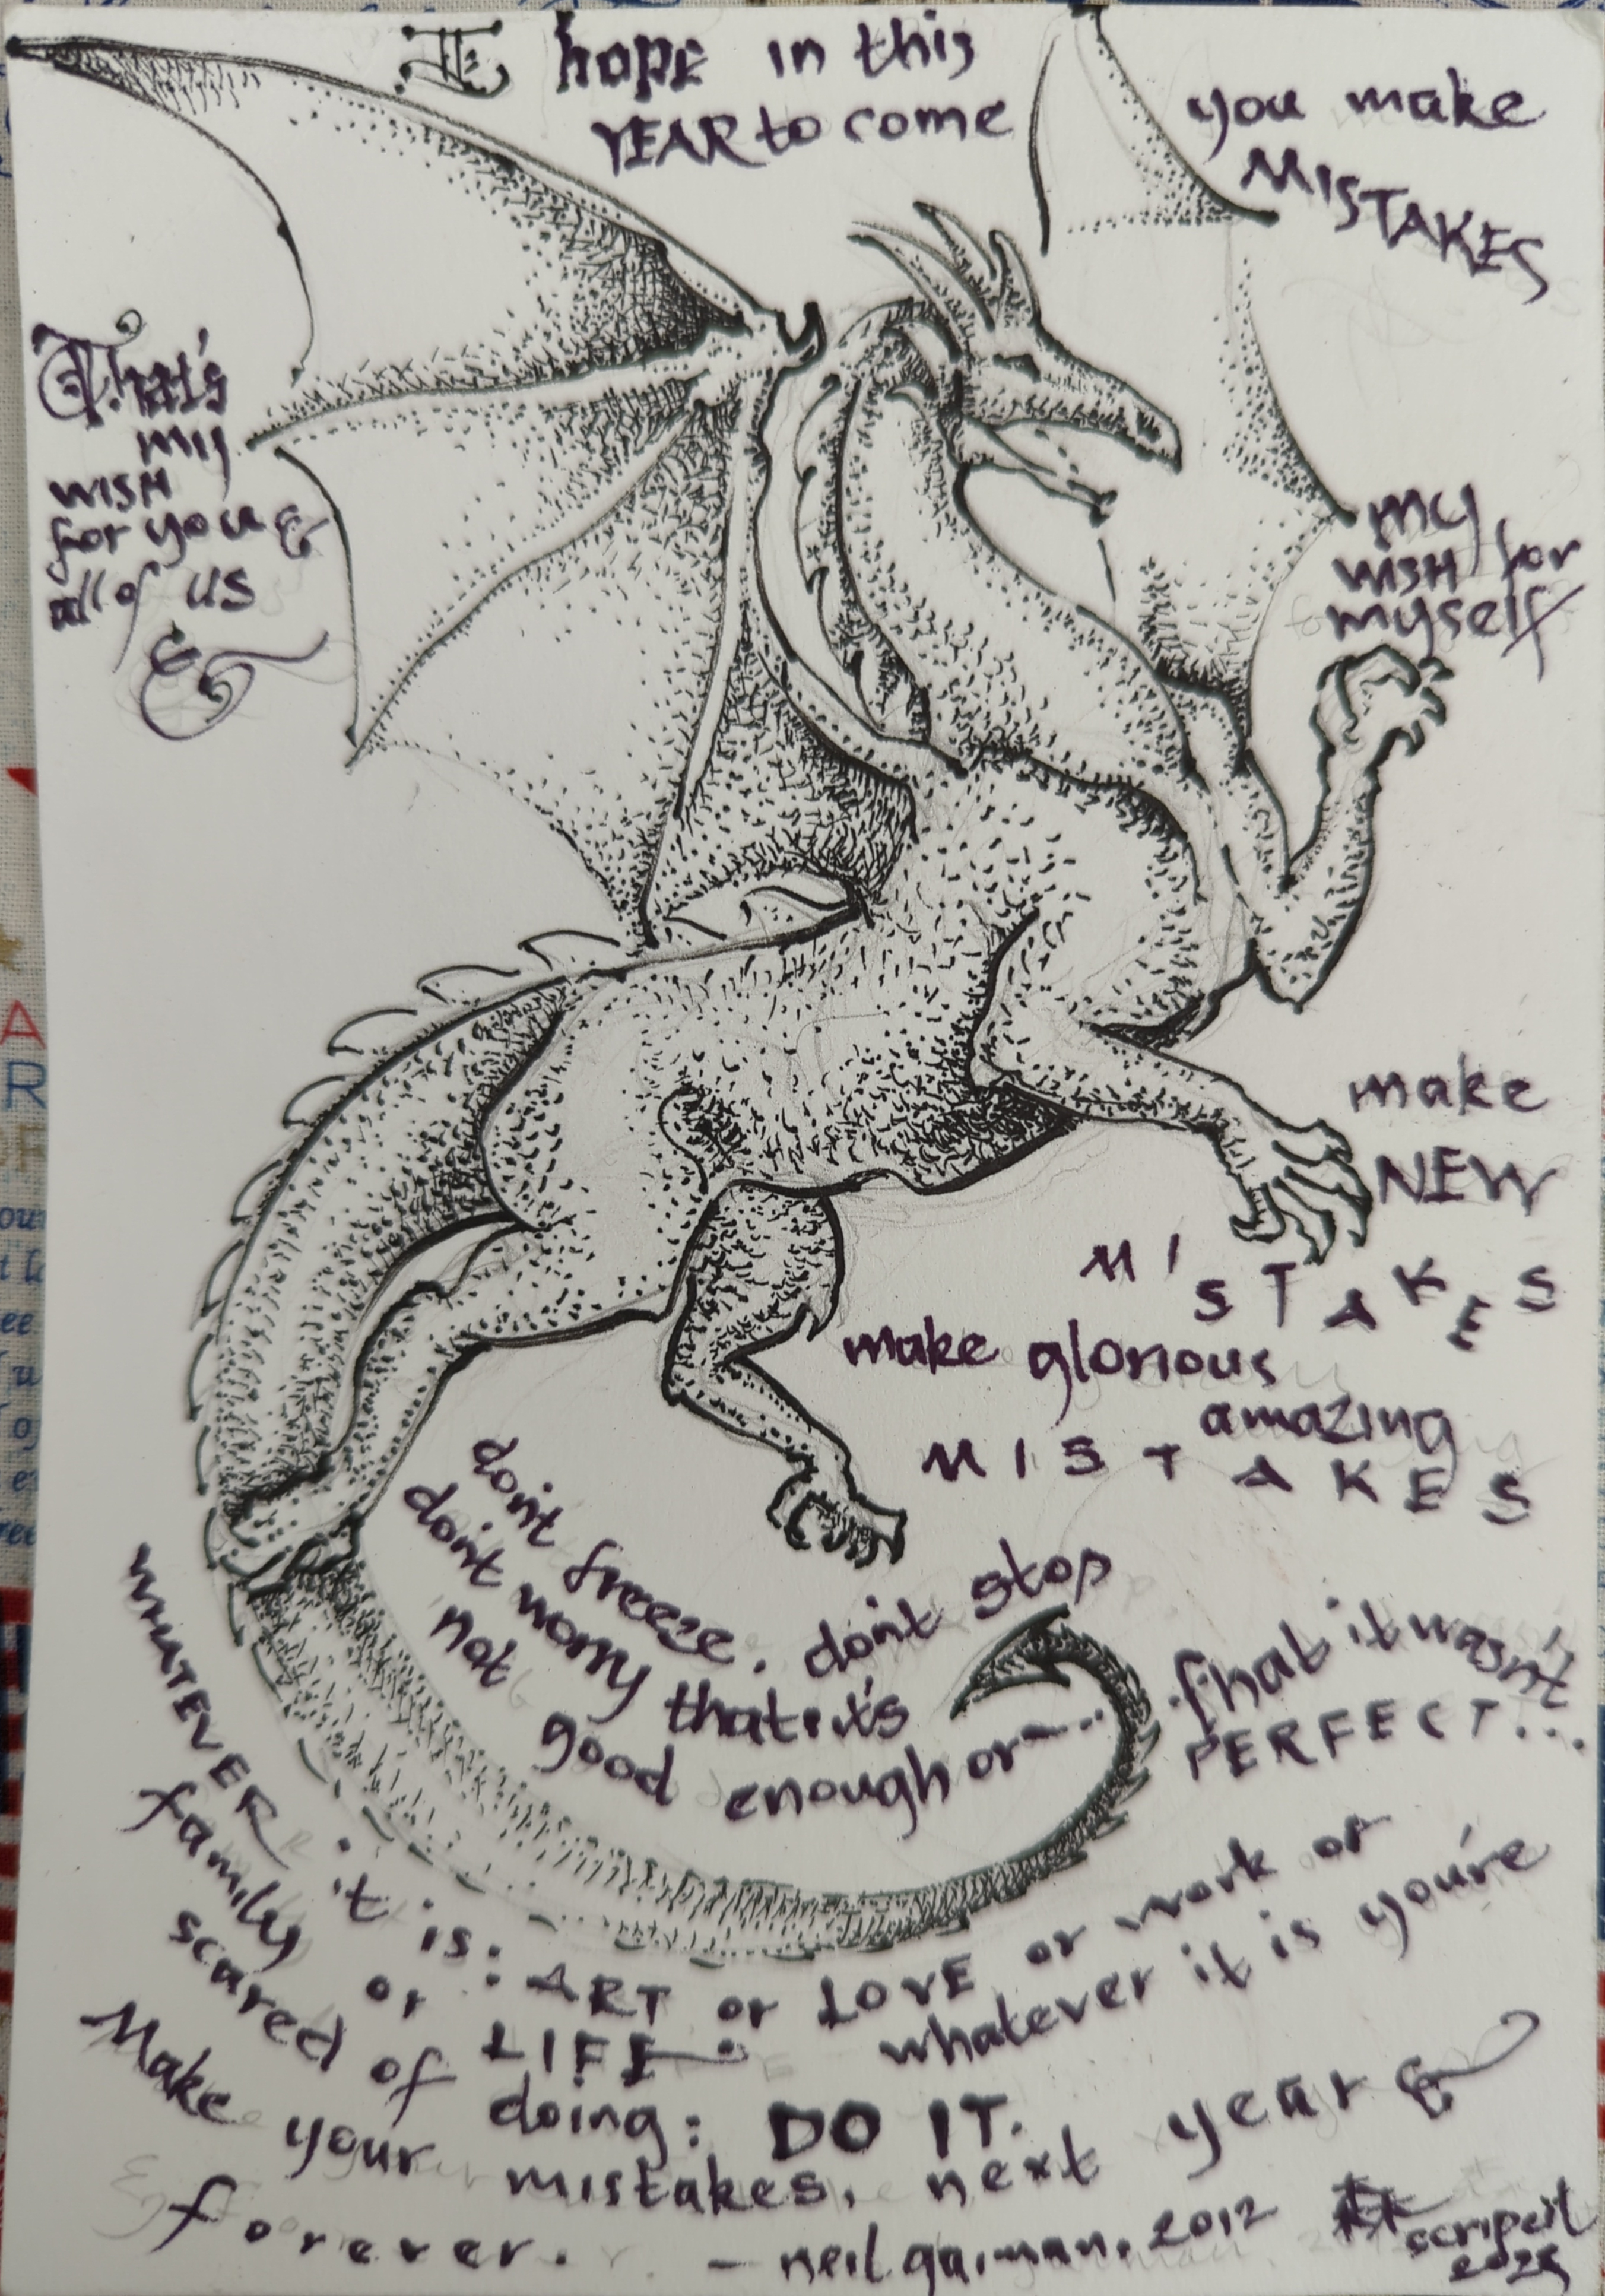 I hope in this
YEAR to come
you make
MISTAKES
That's
my
WISH
for you &
all of us
&
my
WISH for
myself
make
NEW
MISTAKES
make glorious
amazing
MISTAKES
don't freeze, don't stop
don't worry that it's
not good enough or
that it wasn't
PERFECT...
WHATEVER it is: ART or LOVE or work or
family or LIFE whatever it is you're
scared of doing: DO IT.
Make your mistakes, next year &
forever.
- neil gaiman, 2012
scripsit
2025
A
R
F